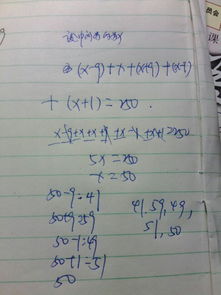 设中间的为x
(x-9)+x+(x+9)+(x-1)
+(x+1)=250.
x-9+x+x+9+x-1+x+1=250
5x=250
x=50
50-9=41
50+9=59
50-1=49
50+1=51
50
41,59,49,
51,50